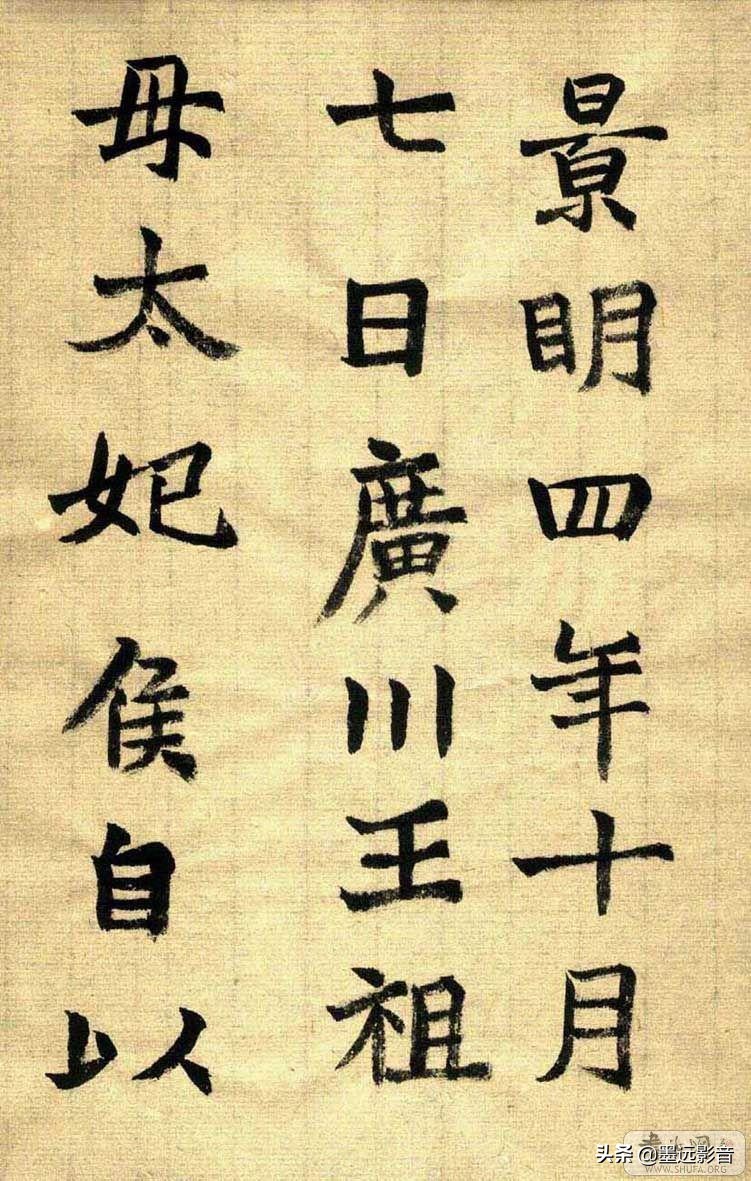 景明四年十月
七日廣川王祖
母太妃侯自以
書法网
WWW.SHUFA.ORG
头条 @墨远影音